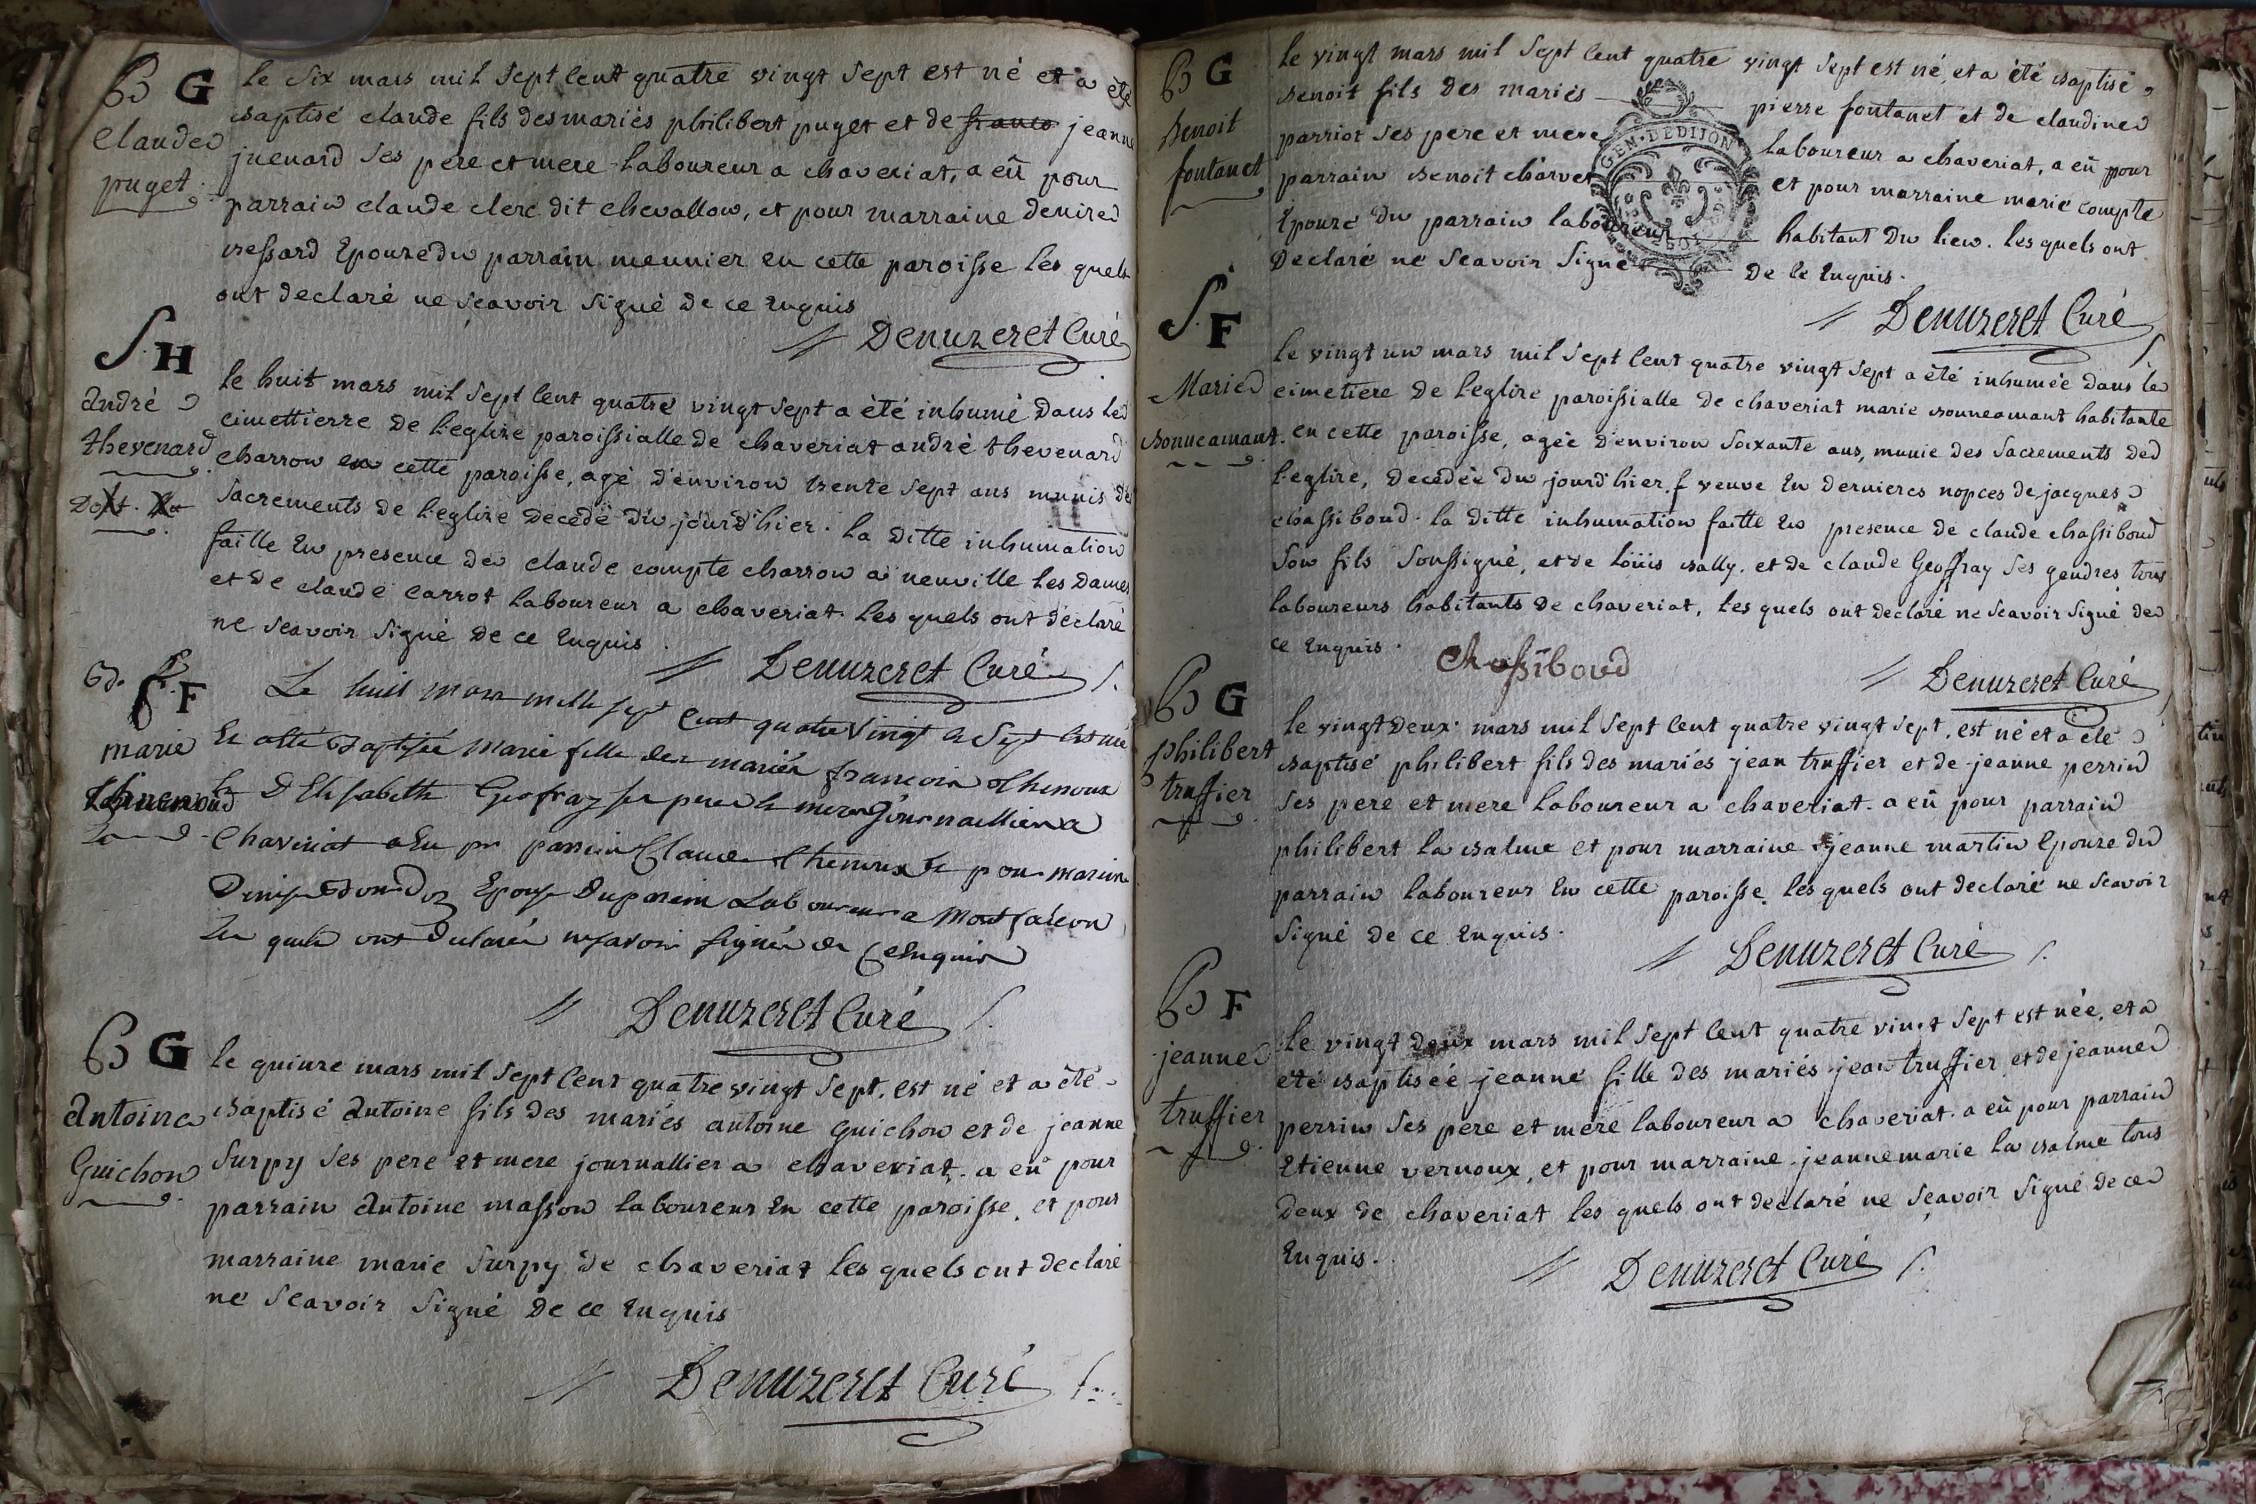 B G
Claude
puget
le six mars mil sept cent quatre vingt sept est né et a été
baptisé claude fils des mariés philibert puget et de jeanne
juenard ses pere et mere laboureur a chaveriat, a eü pour
parrain claude clerc dit chevallon, et pour marraine denise
bessard Epouse du parrain meunier en cette paroisse les quels
ont declaré ne scavoir signé de ce Enquis
Denuzeret Curé
S. H
André
thevenard
le huit mars mil sept cent quatre vingt sept a été inhumé dans le
cimettierre de l'eglise paroissialle de chaveriat andré thevenard
charron en cette paroisse, agé d'environ trente sept ans munis des
sacrements de l'eglise decedé du jourd'hier. la ditte inhumation
faitte en presence de claude compte charron a neuville les dames
et de claude carrot laboureur a chaveriat. les quels ont déclaré
ne scavoir signé de ce Enquis
Denuzeret Curé
F
marie
Le huit mars mille sept cent quatre vingt et sept est née
Et a été Baptisée Marie fille des mariés francois thenoux
et D'Elisabeth Geofray ses pere et mere journaillier a
Chaveriat a Eu pr parrain Claude thenoux et pour maraine
Denise Epouse du parain Laboureur a Montfalcon
Les quels ont declarés ne savoir signés de ce Enquis
Denuzeret Curé
B G
Antoine
Guichon
le quinze mars mil sept cent quatre vingt sept, est né et a été
baptisé Antoine fils des mariés antoine guichon et de jeanne
surpy ses pere et mere journallier a chaveriat. a eü pour
parrain Antoine masson laboureur en cette paroisse, et pour
marraine marie surpy de chaveriat les quels ont declaré
ne scavoir signé de ce Enquis
Denuzeret Curé
B G
Benoit
fontanet
le vingt mars mil sept cent quatre vingt sept est né, et a été baptisé
benoit fils des mariés pierre fontanet et de claudine
parriot ses pere et mere laboureur a chaveriat, a eü pour
parrain benoit charvet et pour marraine marie compte
Epouse du parrain laboureur habitant du lieu. les quels ont
Declaré ne scavoir signé de ce Enquis.
GEN. DE DIJON
Denuzeret Curé
S. F
Marie
bonneamant
le vingt un mars mil sept cent quatre vingt sept a été inhumée dans le
cimetiere de l'eglise paroissialle de chaveriat marie bonneamant habitante
en cette paroisse, agée d'environ soixante ans, munie des sacrements de
l'eglise, decedée du jourd'hier. veuve en dernieres nopces de jacques
chassiboud. la ditte inhumation faitte en presence de claude chassiboud
son fils soussigné, et de löüis bally, et de claude Geoffray ses gendres tous
laboureurs habitants de chaveriat, les quels ont declaré ne scavoir signé de
ce Enquis.
Chassiboud
Denuzeret Curé
B G
philibert
truffier
le vingt deux mars mil sept cent quatre vingt sept, est né et a été
baptisé philibert fils des mariés jean truffier et de jeanne perrin
ses pere et mere laboureur a chaveriat. a eü pour parrain
philibert la balme et pour marraine jeanne martin Epouse du
parrain laboureur en cette paroisse, les quels ont declaré ne scavoir
signé de ce Enquis.
Denuzeret Curé
B F
jeanne
truffier
le vingt deux mars mil sept cent quatre vingt sept est née, et a
été baptisée jeanne fille des mariés jean truffier et de jeanne
perrin ses pere et mere laboureur a chaveriat. a eü pour parrain
Etienne vernoux, et pour marraine jeanne marie la balme tous
deux de chaveriat les quels ont declaré ne scavoir signé de ce
Enquis.
Denuzeret Curé